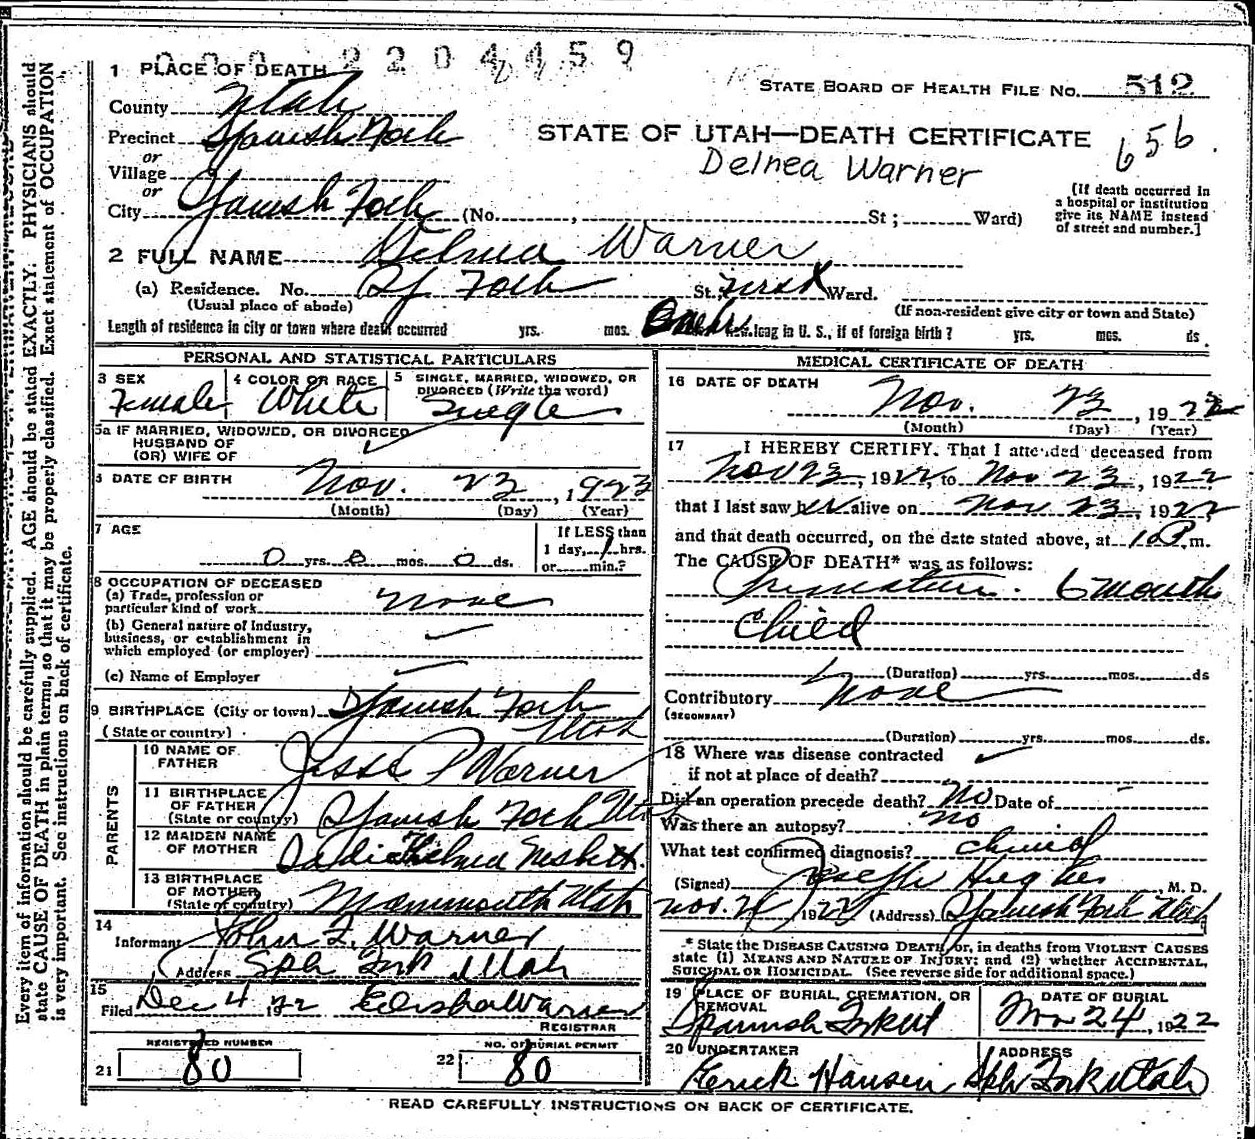 2204459
1 PLACE OF DEATH
STATE BOARD OF HEALTH FILE No. 512
County Utah
Precinct Spanish Fork
STATE OF UTAH—DEATH CERTIFICATE
656.
or
Village
Delnea Warner
or
City Spanish Fork (No. , St ; Ward)
[If death occurred in
a hospital or institution
give its NAME instead
of street and number.]
2 FULL NAME Warner
(a) Residence. No. Sp Fork St.; First Ward.
(Usual place of abode)
(If non-resident give city or town and State)
Length of residence in city or town where death occurred yrs. mos. long in U. S., if of foreign birth? yrs. mos. ds.
PERSONAL AND STATISTICAL PARTICULARS
3 SEX
Female
4 COLOR OR RACE
White
5 SINGLE, MARRIED, WIDOWED, OR
DIVORCED (Write the word)
Single
5a IF MARRIED, WIDOWED, OR DIVORCED
HUSBAND OF
(OR) WIFE OF
6 DATE OF BIRTH
Nov. 23, 1923
(Month) (Day) (Year)
7 AGE
0 yrs. 0 mos. 0 ds.
If LESS than
1 day, 1 hrs.
or min.?
8 OCCUPATION OF DECEASED
(a) Trade, profession or
particular kind of work none
(b) General nature of Industry,
business, or establishment in
which employed (or employer)
(c) Name of Employer
9 BIRTHPLACE (City or town) Spanish Fork
(State or country) Utah
PARENTS
10 NAME OF
FATHER Jesse P Warner
11 BIRTHPLACE
OF FATHER
(State or country) Spanish Fork Utah
12 MAIDEN NAME
OF MOTHER Sadie Thelma Nesbitt.
13 BIRTHPLACE
OF MOTHER
(State or country) Mammouth Utah
14
Informant John F. Warner
Address Sph Fork Utah
15
Filed Dec 4 1922 Elisha Warner
REGISTRAR
REGISTERED NUMBER
21 80
NO. OF BURIAL PERMIT
22 80
MEDICAL CERTIFICATE OF DEATH
16 DATE OF DEATH
Nov. 23, 1922
(Month) (Day) (Year)
17 I HEREBY CERTIFY, That I attended deceased from
Nov 23, 1922, to Nov 23, 1922
that I last saw her alive on Nov 23, 1922,
and that death occurred, on the date stated above, at 10 P.m.
The CAUSE OF DEATH* was as follows:
Premature. 6 months
Child
(Duration) yrs. mos. ds
Contributory None
(SECONDARY)
(Duration) yrs. mos. ds.
18 Where was disease contracted
if not at place of death?
Did an operation precede death? No Date of
Was there an autopsy? no
What test confirmed diagnosis?
(Signed) Joseph Hughes, M. D.
Nov. 1922 (Address) Spanish Fork Utah
* State the DISEASE CAUSING DEATH, or, in deaths from VIOLENT CAUSES
state (1) MEANS AND NATURE OF INJURY; and (2) whether ACCIDENTAL,
SUICIDAL OR HOMICIDAL. (See reverse side for additional space.)
19 PLACE OF BURIAL, CREMATION, OR
REMOVAL
Spannish Fork Ut
DATE OF BURIAL
Nov 24, 1922
20 UNDERTAKER
Hansen
ADDRESS
Sph Fork Utah
READ CAREFULLY INSTRUCTIONS ON BACK OF CERTIFICATE.
Every item of information should be carefully supplied. AGE should be stated EXACTLY. PHYSICIANS should
state CAUSE OF DEATH in plain terms, so that it may be properly classified. Exact statement of OCCUPATION
is very important. See instructions on back of certificate.